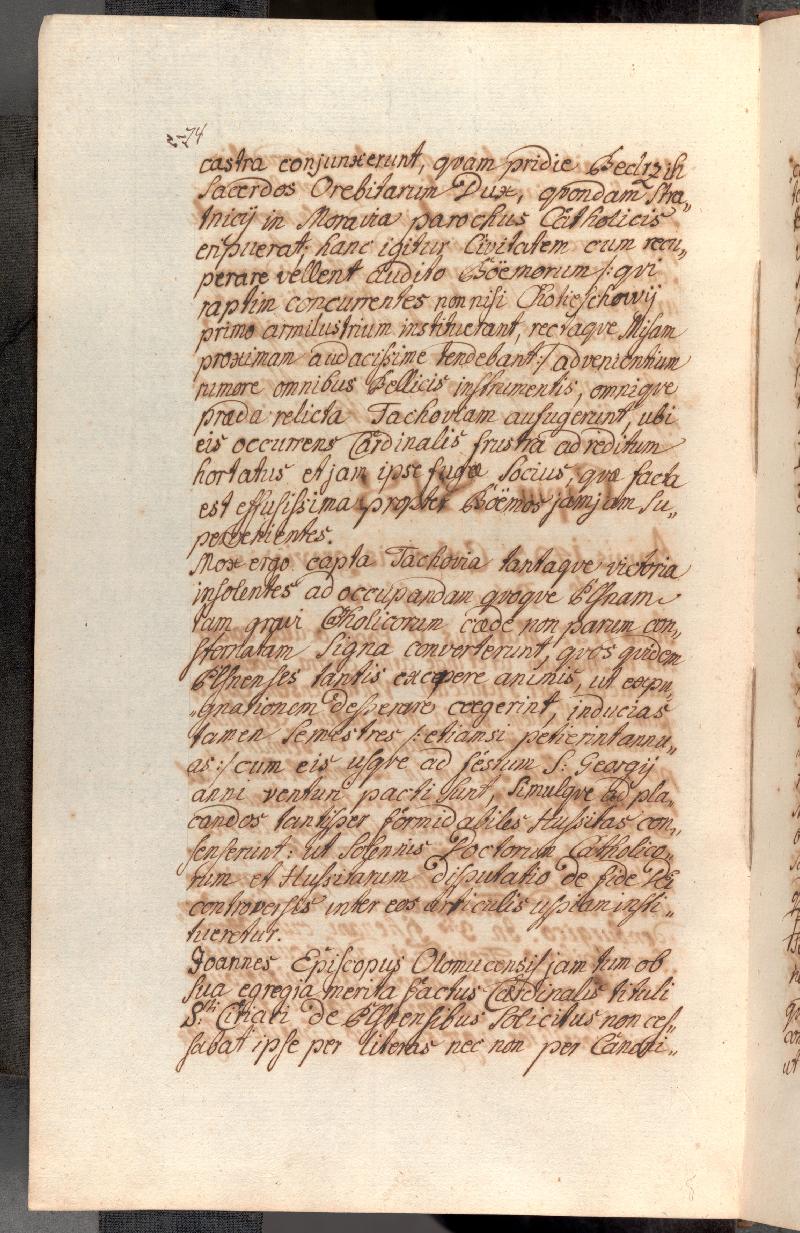 74
castra conjunxerunt, qvam pridie Bedrzih
Sacerdos Orebitarum Dux, qvondam Stra„
tnicij in Moravia parochus Catholicis
eripuerat; hanc igitur Civitatem cum recu„
perare vellent audito Böemorum /: qvi
raptim concurrentes non nisi Chotieschovij
primo armilustrium instituerant, rectaqve Misam
proximam audacissime tendebant :/ advenientium
rumore omnibus Bellicis instrumentis, omniqve
præda relicta Tachoviam aufugerunt, ubi
eis occurrens Cardinalis frustra ad reditum
hortatus et jam ipse fugæ Socius, qvæ facta
est effusissima propter Böemos jamjam Su„
pervenientes.
Mox ergo capta Tachovia tantaqve victoria
insolentes ad occupandam qvoqve Plsnam
tam gravi Catholicorum cæde non parum con„
sternatam Signa converterunt, qvos qvidem
Plsnenses tantis excepere animis, ut expu„
„gnationem desperare coegerint, inducias
tamen Semestres /: etiamsi petierint annu„
as :/ cum eis usqve ad festum S: Georgij
anni venturi pacti sunt, Simulqve ad pla„
candos tantisper formidabiles Hussitas con„
senserunt: ut Solennis Doctorum Catholico„
rum et Hussitarum disputatio de fide Et
controversis inter eos articulis insti„
tueretur.
Joannes Episcopus Olomucensis jam tum ob
Sua egregia merita factus Cardinalis tituli
S:ti Ciriaci de Plsnensibus Solicitus non ces„
sabat ipse per literas nec non per Canoni„
8